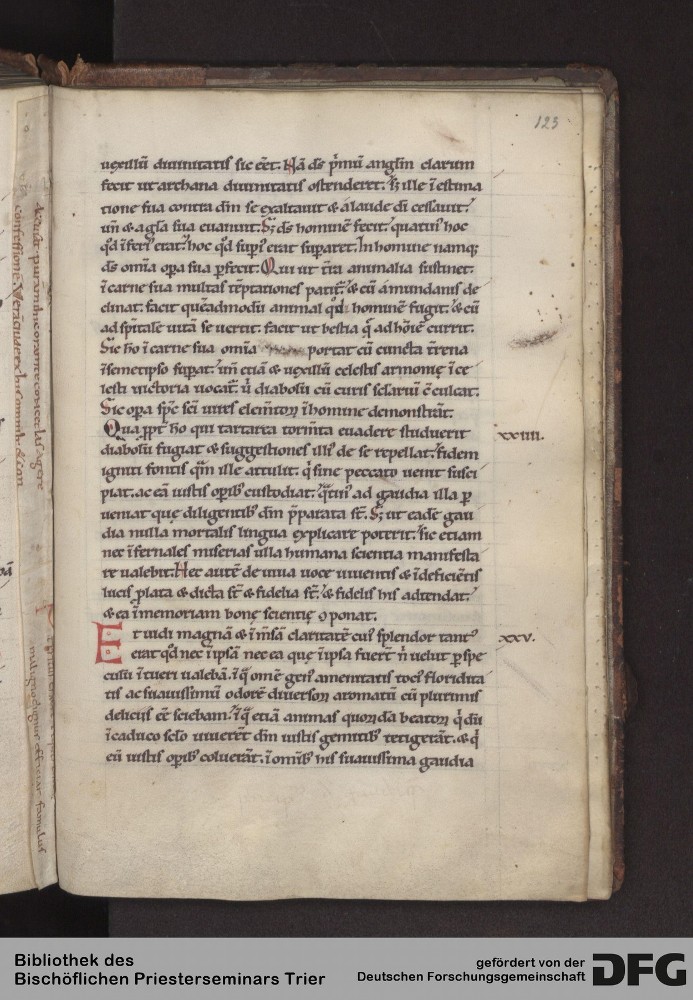 123
uexillū diuinitatis sic eēt. Nā ds p̄mū angl̄m clarum
fecit ut archana diuinitatis ostenderet. Sȝ ille ī estima
tione sua contra dm̄ se exaltauit & a laude di cessauit.
un̄ & a gl̄a sua euanuit. Sȝ ds hominē fecit. quatin' hoc
qd̄ inferi' erat. hoc qd̄ supi' erat supraret. In homine namq;
ds om̄ia opa sua pfecit. Qui ut cetera animalia sustinet.
ī carne sua multas tēptationes patit̄. & cū a mundanis de
clinat. facit quēadmodū animal qd̄ hominē fugit. & cū
ad sp̄italē uitā se uertit. facit ut bestia q̄ ad hōiē currit.
Sic hō ī carne sua om̄ia portat cū cuncta t̄rena
ī semetipso supat. un̄ etiā & uexillū celestis armonię ī ce
lesti uictoria uocat̄. ū diabolū cū curis sclariū cculcat.
Sic opa sp̄c sc̄i uires elemtoꝝ ī homine demonstrāt.
Qua ppt̄ hō qui tartarea torm̄ta euadere studuerit
xxiiii.
diabolū fugiat & suggestiones illi' de se repellat. fidem
igniti fontis qm̄ ille attulit. q̄ sine peccato uenit susci
piat. ac eā iustis opib' custodiat. q̄tin' ad gaudia illa p
ueniat quę diligentib' dm̄ p̄parata st̄. Sȝ ut eadē gau
dia nulla mortalis lingua explicare poterit. sic etiam
nec īfernales miserias ulla humana scientia manifesta
re ualebit. Hec autē de uiua uoce uiuentis & īdeficiētis
lucis plata & dicta st̄ & fidelia st̄. & fidelis his adtendat.
& ea ī memoriam bonę scientię ꝯponat.
Et uidi magnā & īm̄sā claritatē cui' splendor tant'
xxv.
erat qd̄ nec īpsā nec ea quę ī ipsa fuer̄t n̄ uelut p spe
culū ītueri ualebā. ī q̄ omē gen' amenitatis toci' floridita
tis ac suauissimū odorē diuersoꝝ aromatū cū plurimis
deliciis eē sciebam. ī q̄ etiā animas quorūdā beatoꝝ q̄ dū
ī caduco sc̄lo uiuerēt dm̄ iustis gemitib' tetigerāt. & q̄
eū iustis opib' coluerāt. ī om̄ib' his suauissima gaudia
Bibliothek des
Bischöflichen Priesterseminars Trier
gefördert von der
Deutschen Forschungsgemeinschaft
DFG